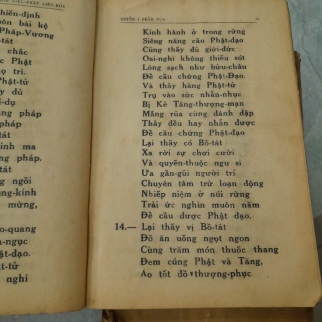 QUYỂN 1 PHẨM TỰA
Kinh hành ở trong rừng
Siêng năng cầu Phật-đạo
Cũng thấy đủ giới-đức
Oai-nghi không thiếu sót
Lòng sạch như bửu-châu
Để cầu chứng Phật-Đạo.
Và thấy hàng Phật-tử
Trụ vào sức nhẫn-nhục
Bị Kẻ Tăng-thượng-mạn
Mắng rủa cùng đánh đập
Thảy đều hay nhẫn được
Để cầu chứng Phật-đạo
Lại thấy có Bồ-tát
Xa rời sự chơi cười
Và quyến-thuộc ngu si
Ưa gần-gũi người trí
Chuyên tâm trừ loạn động
Nhiếp niệm ở núi rừng
Trải ức nghìn muôn năm
Để cầu được Phật đạo.
14.— Lại thấy vị Bồ-tát
Đồ ăn uống ngọt ngon
Cùng trăm món thuốc thang
Đem cúng Phật và Tăng,
Áo tốt đồ thượng-phục
hiền-định
ôn bài kệ
Pháp-Vương
t-tát
chắc
Phật
ọ trì.
Phật-tử
đủ
í-dụ
g pháp
t-tát
inh ma
pháp.
tát
g ngồi
ung-kính
mừng,
ạo-quang
-ngục
t-đạo
t-tử
nghỉ